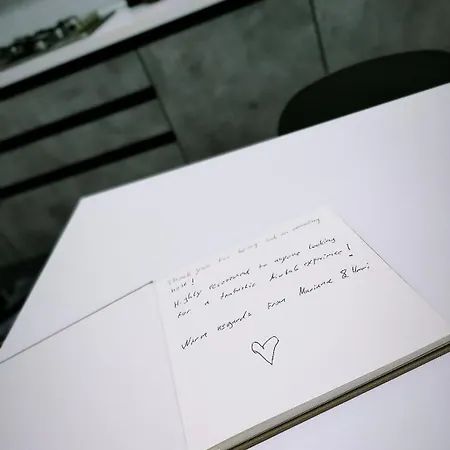 Thank you for being such an amazing
host!
Highly recommend to anyone looking
for a fantastic airbnb experience!
Warm regards from Mariana &